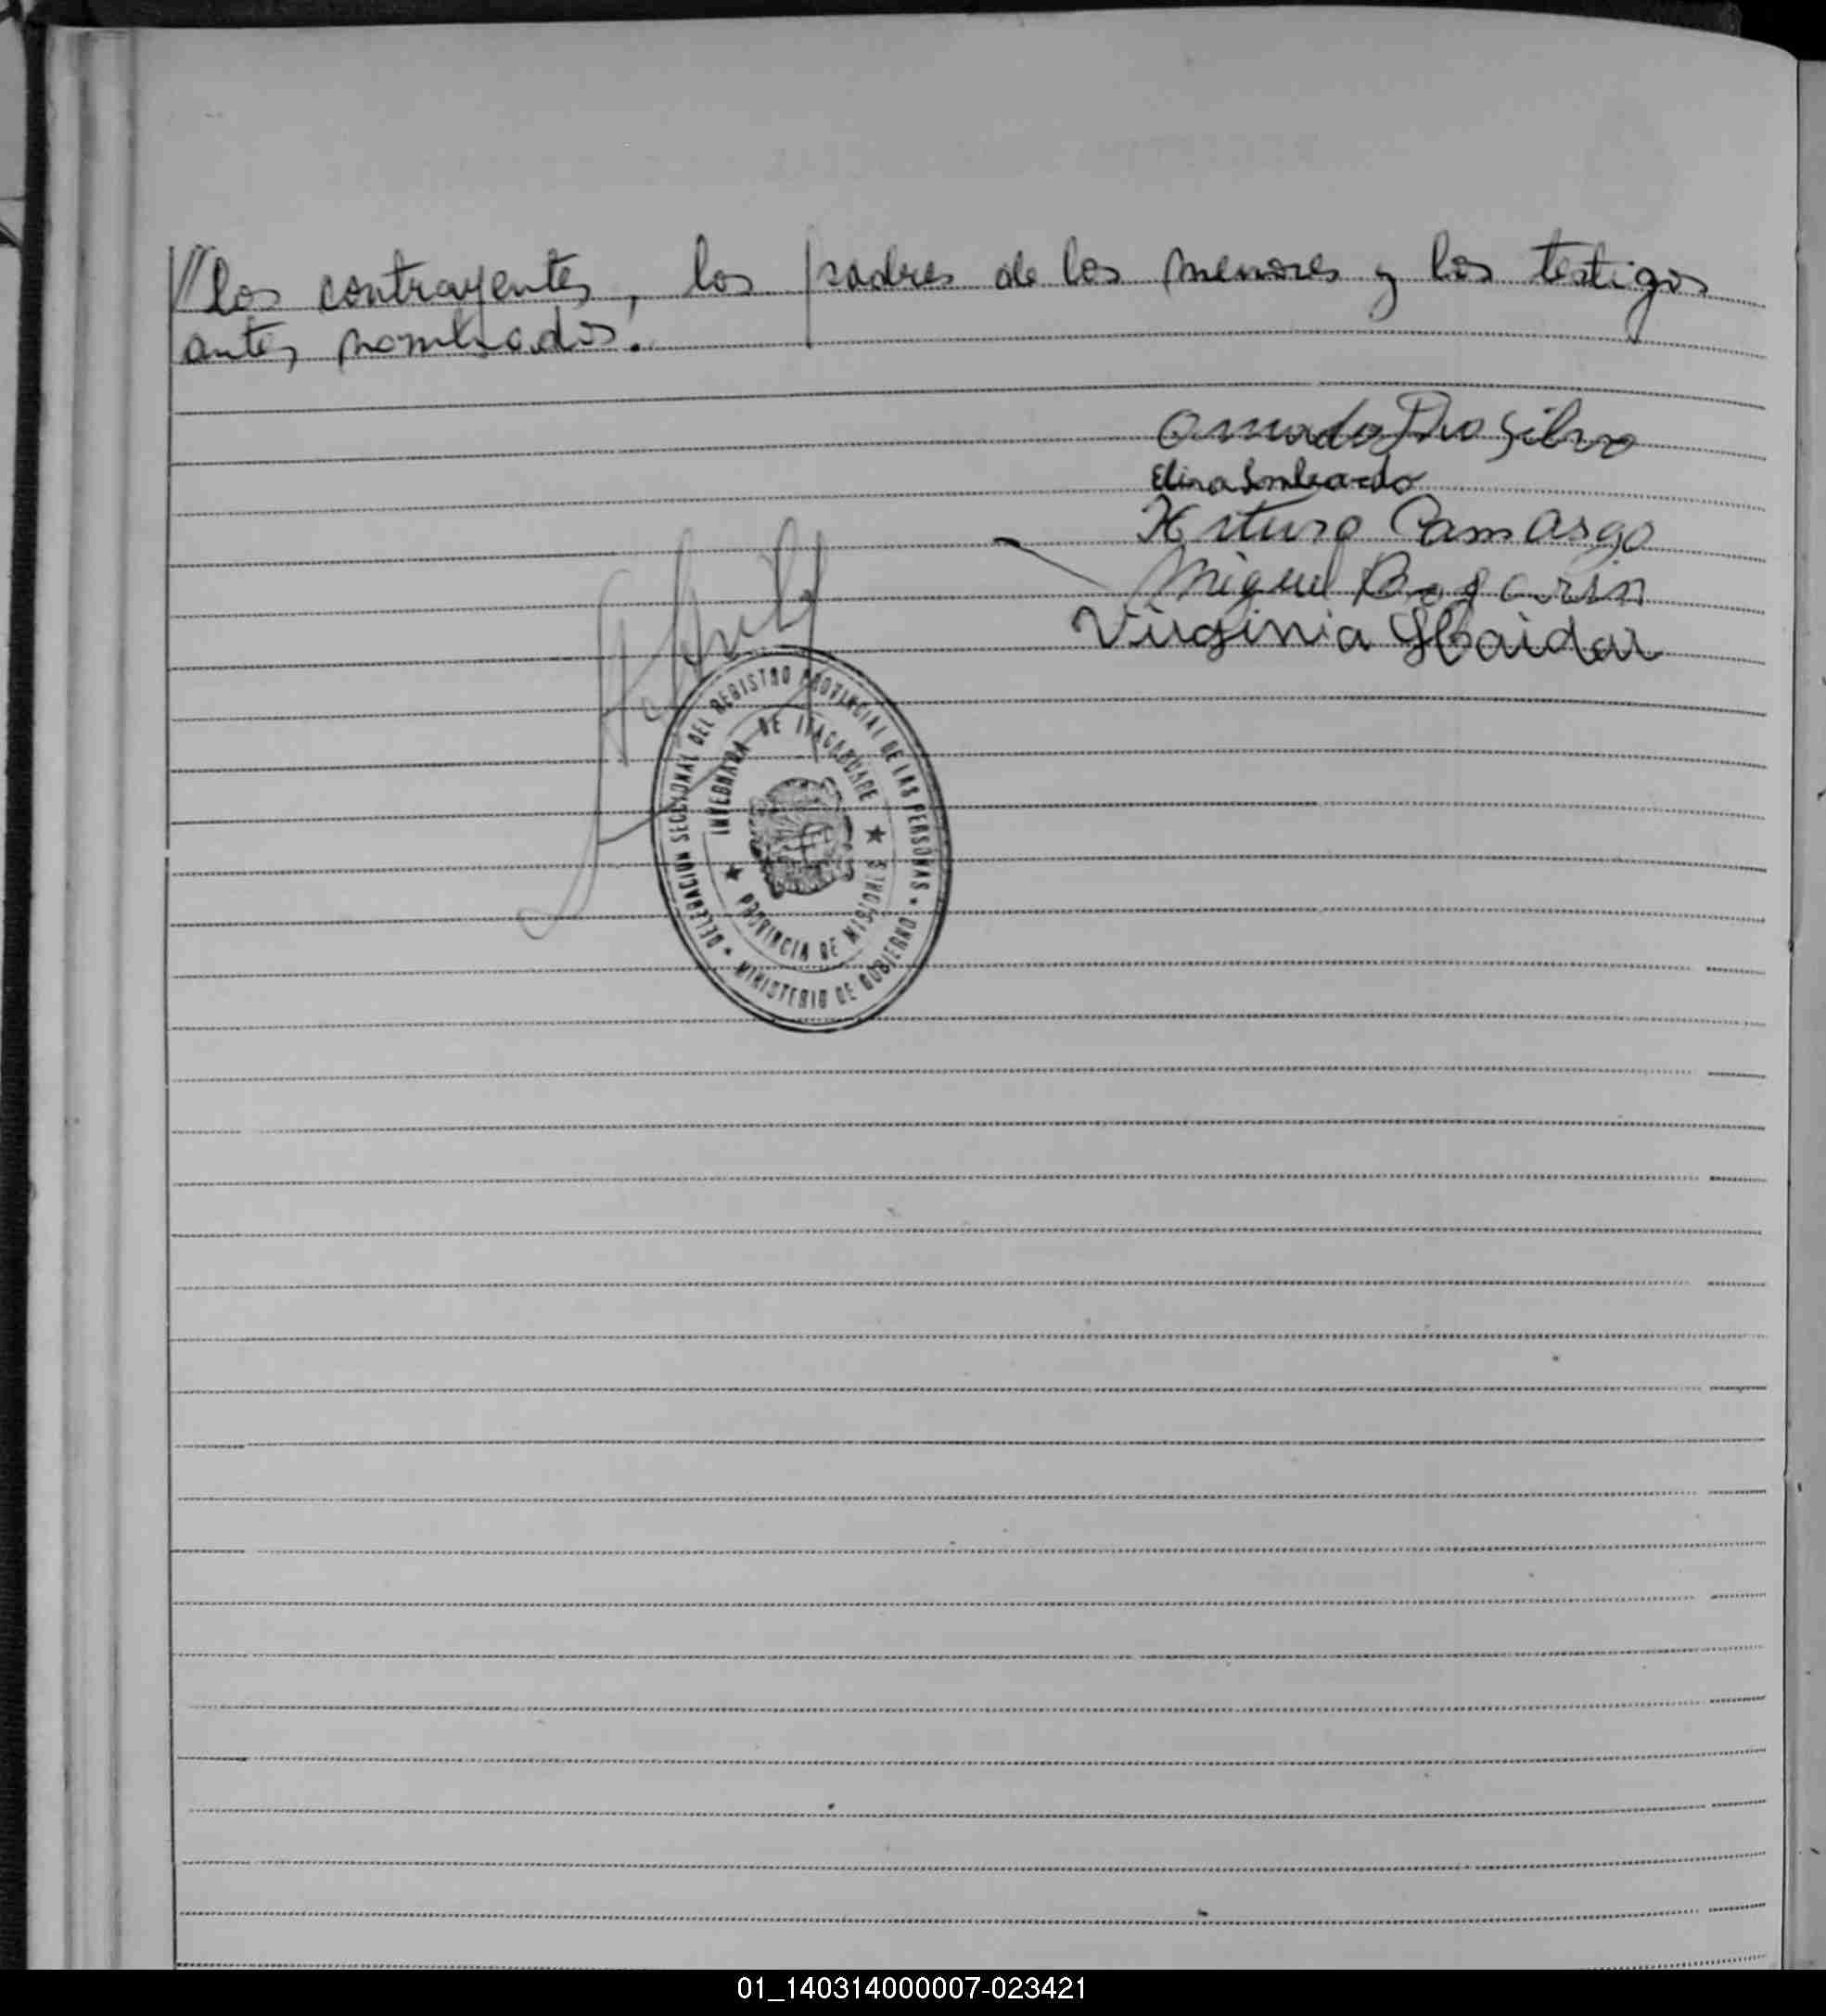 //los contrayentes, los padres de los menores y los testigos
antes nombrados.
Amado Da Silva
Elina Lombardo
Arturo Camargo
Miguel
Virginia Haidar
DELEGACION SECCIONAL DEL REGISTRO PROVINCIAL DE LAS PERSONAS
INVERNADA DE ITACARUARE
PROVINCIA DE MISIONES
MINISTERIO DE GOBIERNO
01_140314000007-023421